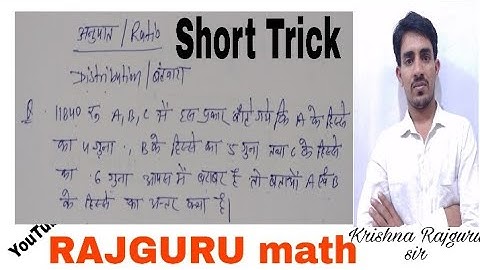 अनुपात / Ratio
Short Trick
Distribution / बंटवारा
11840 रु A, B, C में इस प्रकार बाँटे गये कि A के हिस्से
का 4 गुना, B के हिस्से का 5 गुना तथा C के हिस्से
का 6 गुना आपस में बराबर है तो बताओ A एवं B
के हिस्से का अन्तर क्या है।
YouTu
RAJGURU math
Krishna Rajguru
sir